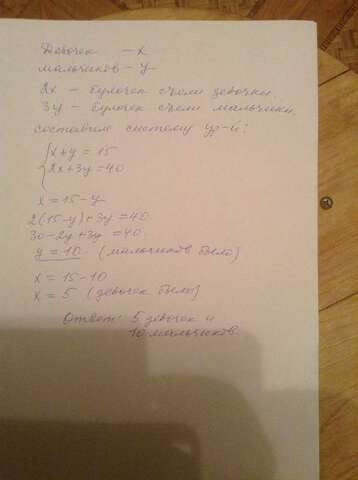 Девочек - x
мальчиков - y
2x - булочек съели девочки
3y - булочек съели мальчики.
составляем систему ур-й:
{ x + y = 15
2x + 3y = 40
x = 15 - y
2(15-y) + 3y = 40
30 - 2y + 3y = 40
y = 10 (мальчиков было)
x = 15 - 10
x = 5 (девочек было)
Ответ: 5 девочек и
10 мальчиков.